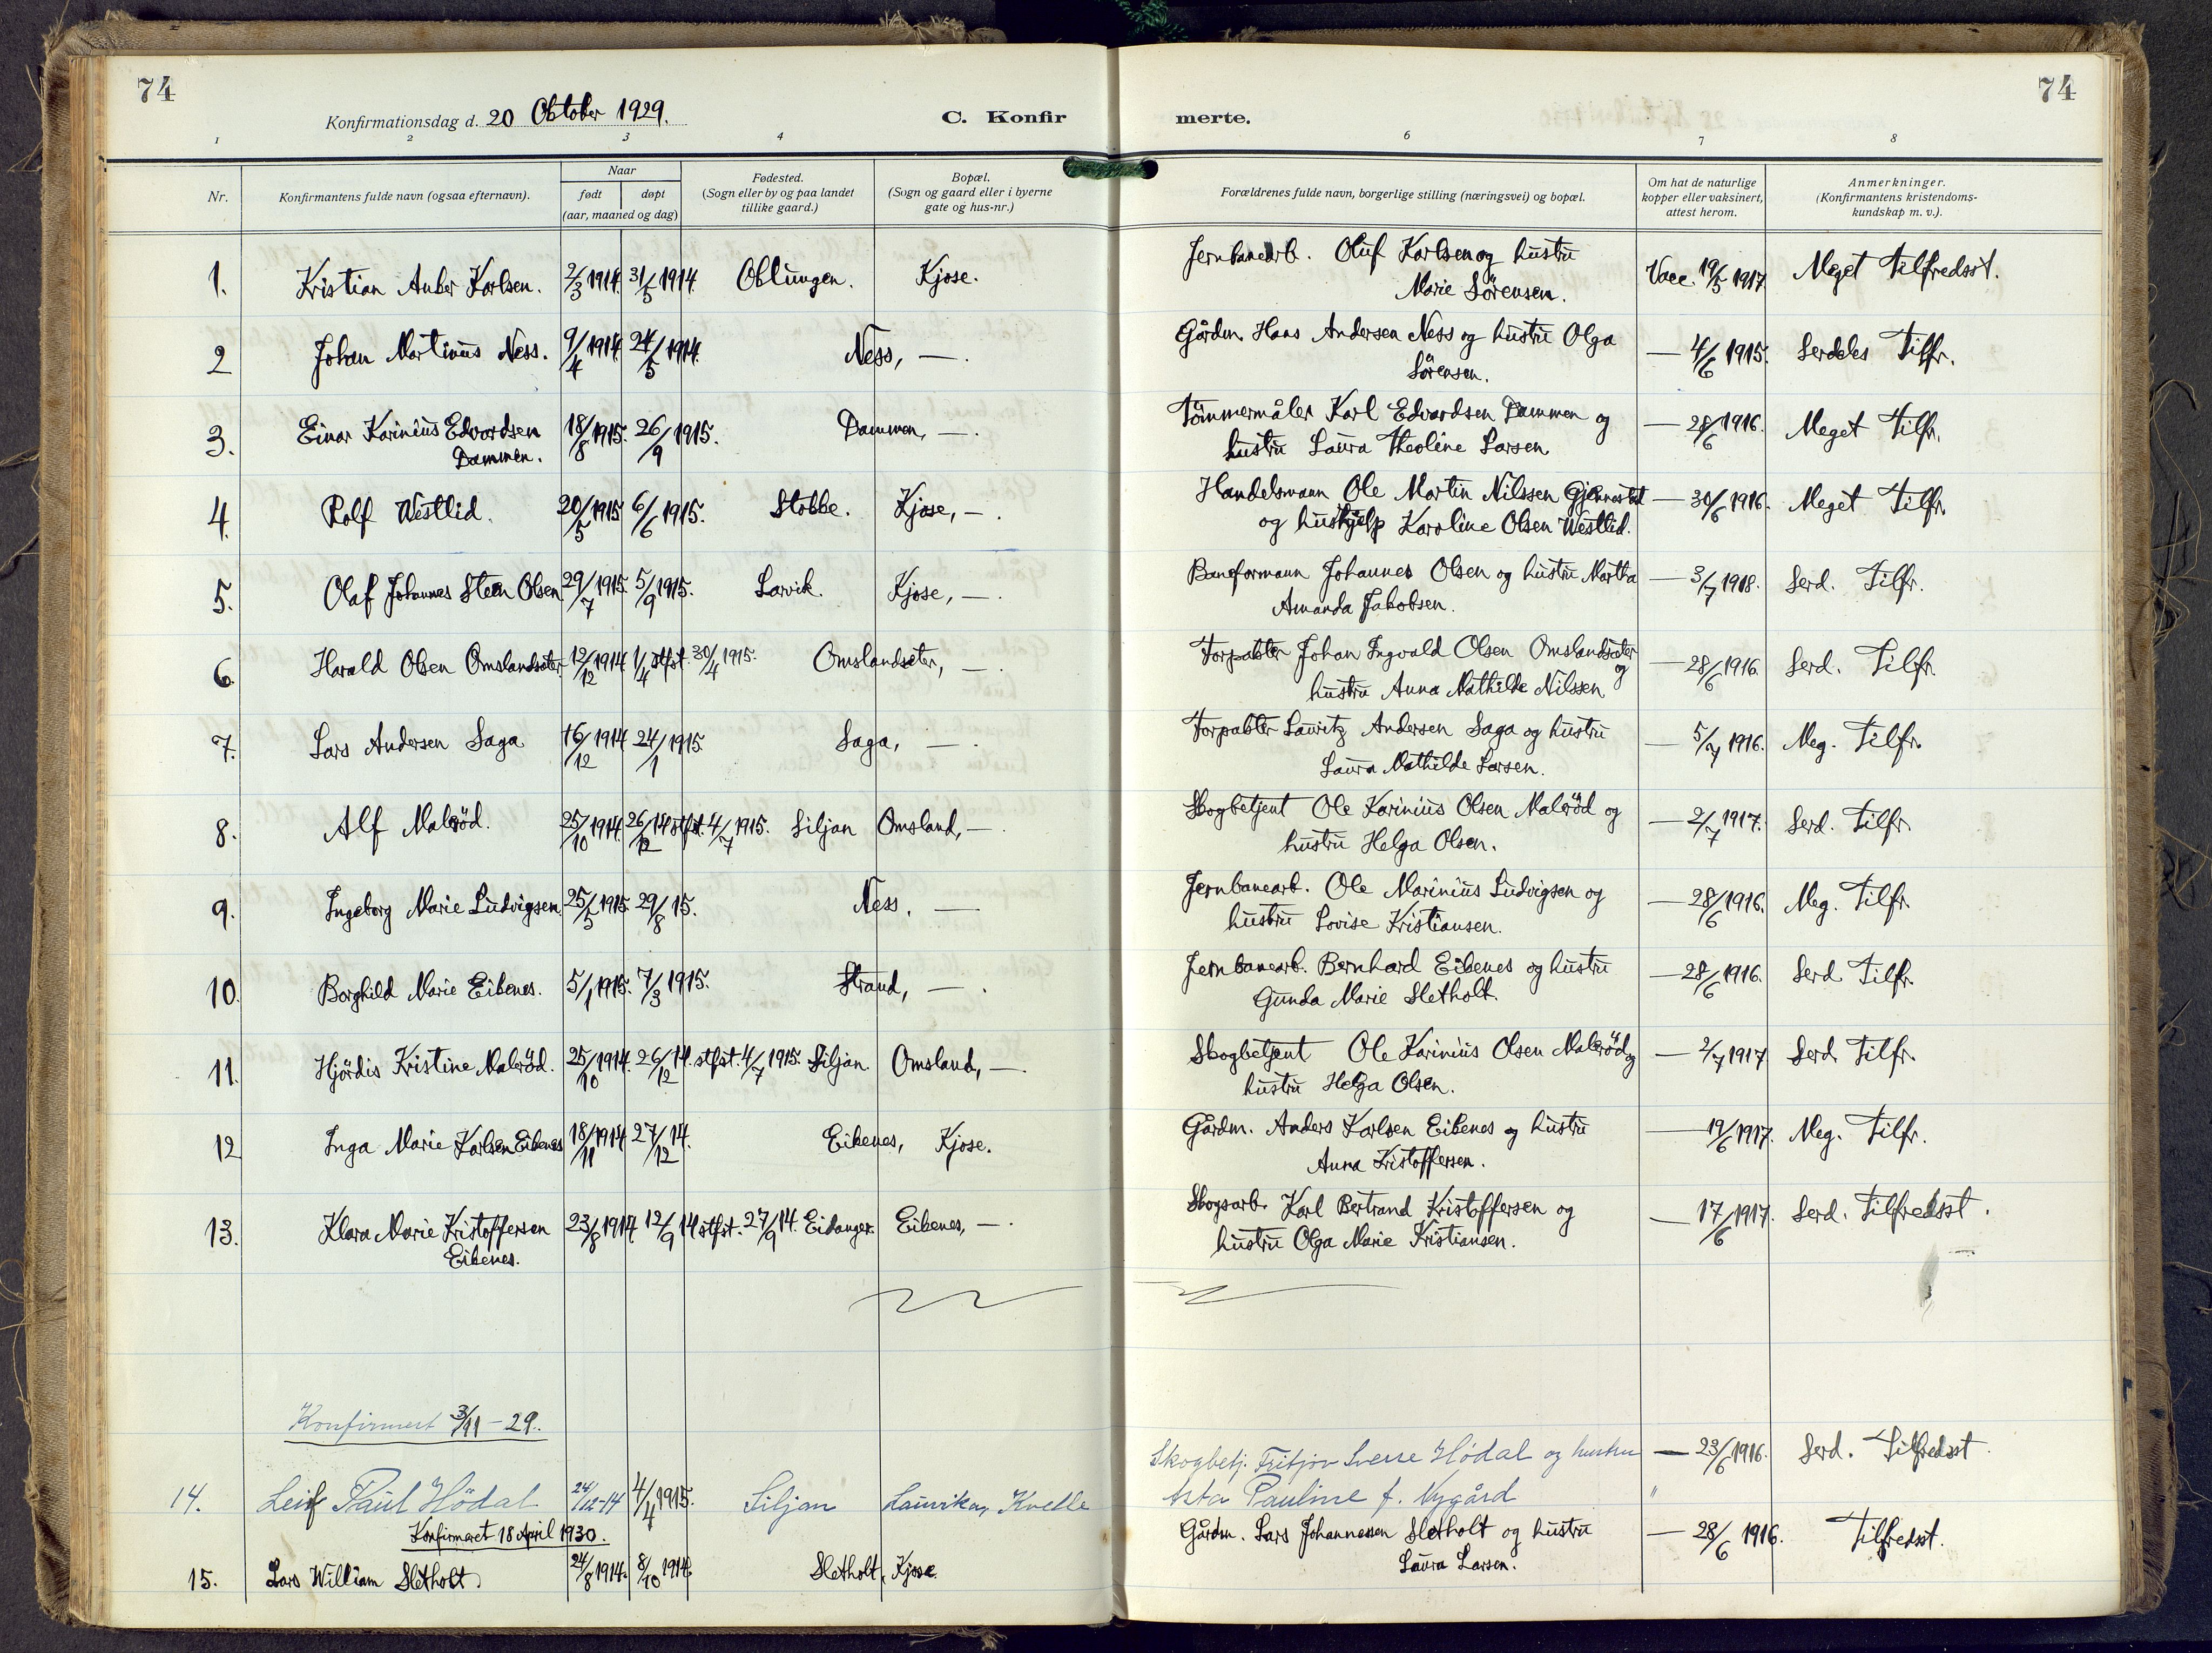 74
74
Konfirmationsdag d. 20 Oktober 1929.
C. Konfir
merte.
1 2 3 4 6 7 8
Nr.
Konfirmantens fulde navn (ogsaa efternavn).
Naar
født døpt
(aar, maaned og dag)
Fødested.
(Sogn eller by og paa landet
tillike gaard.)
Bopæl.
(Sogn og gaard eller i byerne
gate og hus-nr.)
Forældrenes fulde navn, borgerlige stilling (næringsvei) og bopæl.
Om hat de naturlige
kopper eller vaksinert,
attest herom.
Anmerkninger.
(Konfirmantens kristendoms-
kundskap m. v.).
Jernbanearb. Oluf Karlsen og hustru
1. Kristian Anker Karlsen. 2/3 1914. 31/5 1914. Oklungen. Kjose. Vacc. 19/5 1917 Meget Tilfredsst.
Marie Sørensen.
Gårdm. Hans Andersen Ness og hustru Olga
2 Johan Martinius Ness. 9/4 1914. 24/5 1914. Ness, —. — 4/6 1915. Serdeles Tilfr.
Sørensen.
Tømmermåler Karl Edvardsen Dammen og
3. Einar Karinius Edvardsen 18/8 1915. 26/9 1915. Dammen, —. — 28/6 1916. Meget Tilfr.
Dammen. hustru Laura Theoline Larsen
Handelsmann Ole Martin Nilssen Gjennestad — 30/6 1916. Meget Tilfr.
4. Rolf Westlid. 20/5 1915 6/6 1915. Stokke. Kjose, —. og hushjelp Karoline Olsen Westlid.
Baneformann Johannes Olsen og hustru Martha — 3/7 1918. Serd. Tilfr.
5. Olaf Johannes Steen Olsen 29/7 1915. 5/9 1915. Larvik. Kjose, —. Amanda Jakobsen.
Torpakter Johan Ingvald Olsen Omslandseter og
6. Harald Olsen Omslandseter 12/12 1914 1/4 stfst. 30/4 1915. Omslandseter, —. — 28/6 1916. Serd. Tilfr.
hustru Anna Mathilde Nilssen
Torpakter Lauritz Andersen Saga og hustru
7. Lars Andersen Saga 16/12 1914 24/1 1915. Saga, —. — 5/7 1916. Meg. Tilfr.
Laura Mathilde Larsen.
Skogbetjent Ole Karinius Olsen Malerød og
8. Alf Malerød. 25/10 1914. 26/12 14 stfst. 4/7 1915. Siljan Omsland, —. — 2/7 1917. Serd. Tilfr.
hustru Helga Olsen.
Jernbanearb. Ole Marinius Ludvigsen og
9. Ingeborg Marie Ludvigsen. 25/5 1915 29/8 15. Ness. — — 28/6 1916. Meg. Tilfr.
hustru Lovise Kristiansen.
Jernbanearb. Bernhard Eikenes og hustru
10. Borghild Marie Eikenes. 5/1 1915. 7/3 1915. Strand, —. — 28/6 1916. Serd Tilfr.
Gunda Marie Sletholt.
Skogbetjent Ole Karinius Olsen Malerød og
11. Hjørdis Kristine Malerød. 25/10 1914. 26/12 14. stfst. 4/7 1915. Siljan. Omsland, —. — 2/7 1917 Serd. Tilfr.
hustru Helga Olsen.
Gårdm. Anders Karlsen Eikenes og hustru
12 Inga Marie Karlsen Eikenes 18/11 1914 27/12 14. Eikenes, Kjose. — 19/6 1917. Meg. Tilfr.
Anna Kristoffersen.
Skogsarb. Karl Bertrand Kristoffersen og
13. Klara Marie Kristoffersen 23/8 1914. 12/9 14 stfst. 27/9 14. Eidanger. Eikenes, —. — 17/6 1917. Serd. Tilfredsst.
Eikenes. hustru Olga Marie Kristiansen.
Konfirmert 3/11 – 29.
Skogbetj. Fritjov Sverre Hødal og hustru — 23/6 1916. Serd. Tilfredsst.
14. Leif Paul Hödal 24/12-14 4/4 1915. Siljan Laurika, Kvelle Asta Pauline f. Nygård "
Konfirmeret 18 April 1930.
Gårdm. Lars Johannessen Sletholt og hustru — 28/6 1916. Tilfredsst.
15. Lars William Sletholt. 24/8 1914. 8/10 1914. Sletholt, Kjose. Laura Larsen.